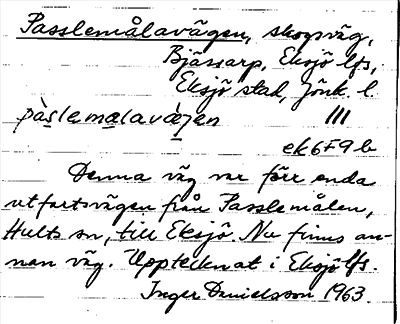 Passlemålavägen, skogsväg,
Bjässarp, Eksjö lfs,
Eksjö stad, Jönk. l.
pàslemalavä̀gen III
ek6F9b
Denna väg var förr enda
utfartsvägen från Passlemålen,
Hults sn, till Eksjö. Nu finns an-
nan väg. Upptecknat i Eksjö lfs.
Inger Danielsson 1963.